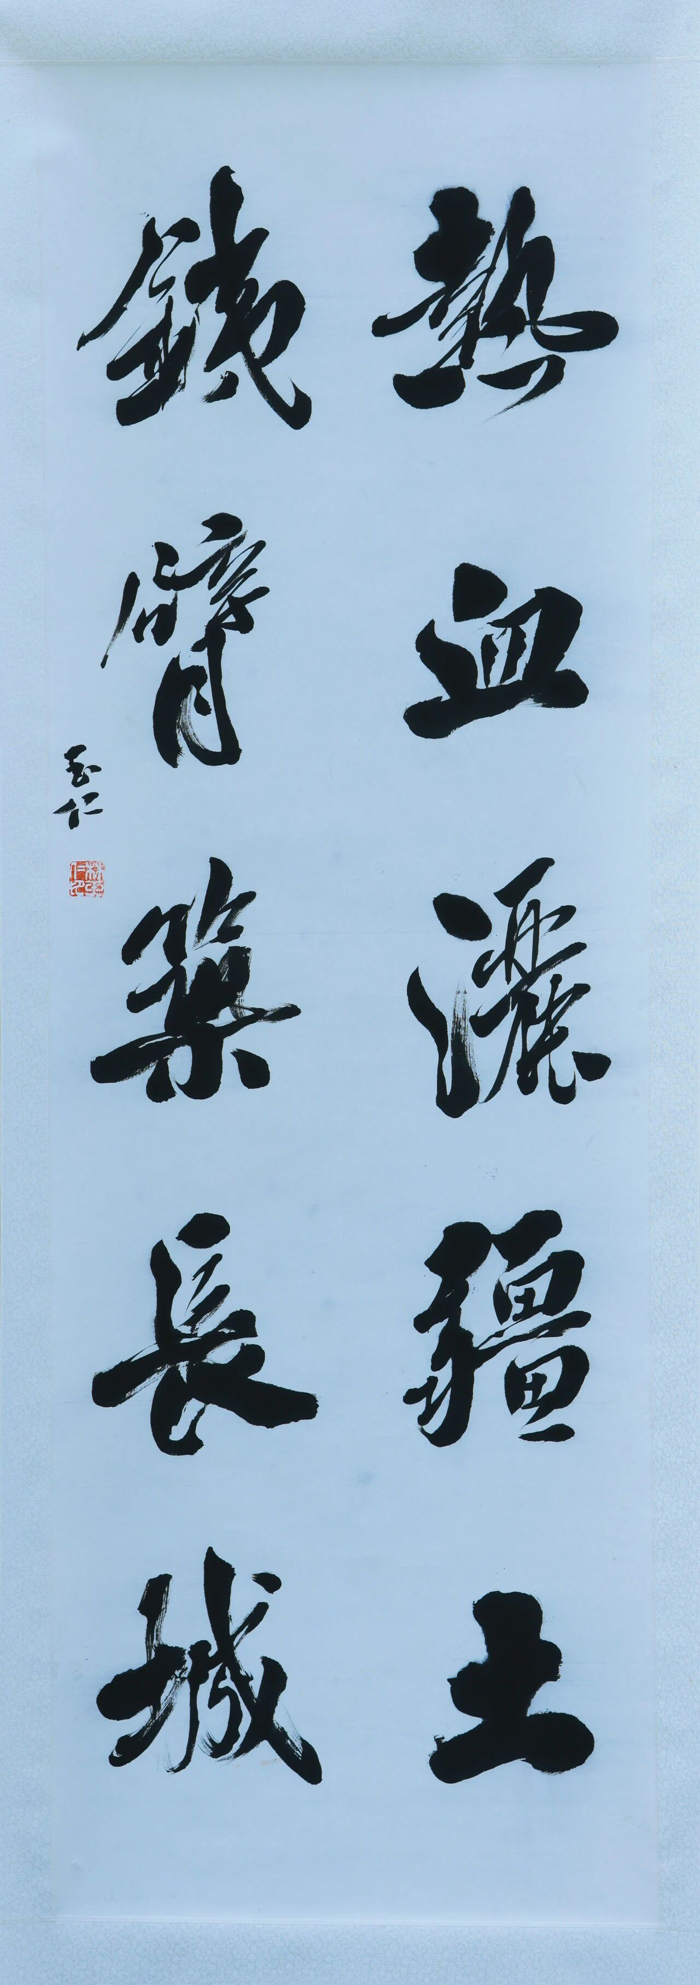 熱血灑疆土
鐵臂築長城
玉仁